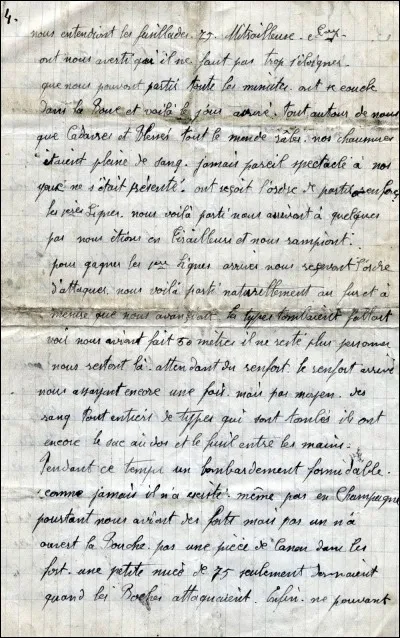 4.
nous entendions les fusillades. 75. Mitrailleuse.
ont nous averti qu'il ne faut pas trop s'éloigner.
que nous pouvont partir toute les minutes. ont se couche
dans la Boue et voilà le jour arrivé. tout autour de nous
que Cadavres et Blessés tout le monde râles. nos chaumures
étaient pleine de sang. jamais pareil spectacle à nos
yeux ne s'était présenté. ont reçoit l'ordre de partir
les 1eres Lignes. nous voilà parti nous arrivont à quelques
pas nous étions en Tirailleurs et nous rampiont.
pour gagner les 1eres Lignes arrivés nous recevont l'ordre
d'attaquer. nous voilà parti naturellement au furet à
mesure que nous avanciont les types tombaient fallait
voir nous aviont fait 50 mètres il ne reste plus personne
nous restont là. attendant du renfort. le renfort arrivé
nous assayont encore une fois. mais pas moyen. des
rang tout entiers de types qui sont tombés ils ont
encore le sac au dos et le fusil entre les mains.
Pendant ce temps un bombardement formidable.
comme jamais il n'a existé. même pas en Champagne
pourtant nous aviont des forts mais pas un n'a
ouvert la Bouche. pas une pièce de Canon dans les
fort. une petite pièce de 75 seulement donnaient
quand les Boches attaquaient. Enfin. ne pouvant